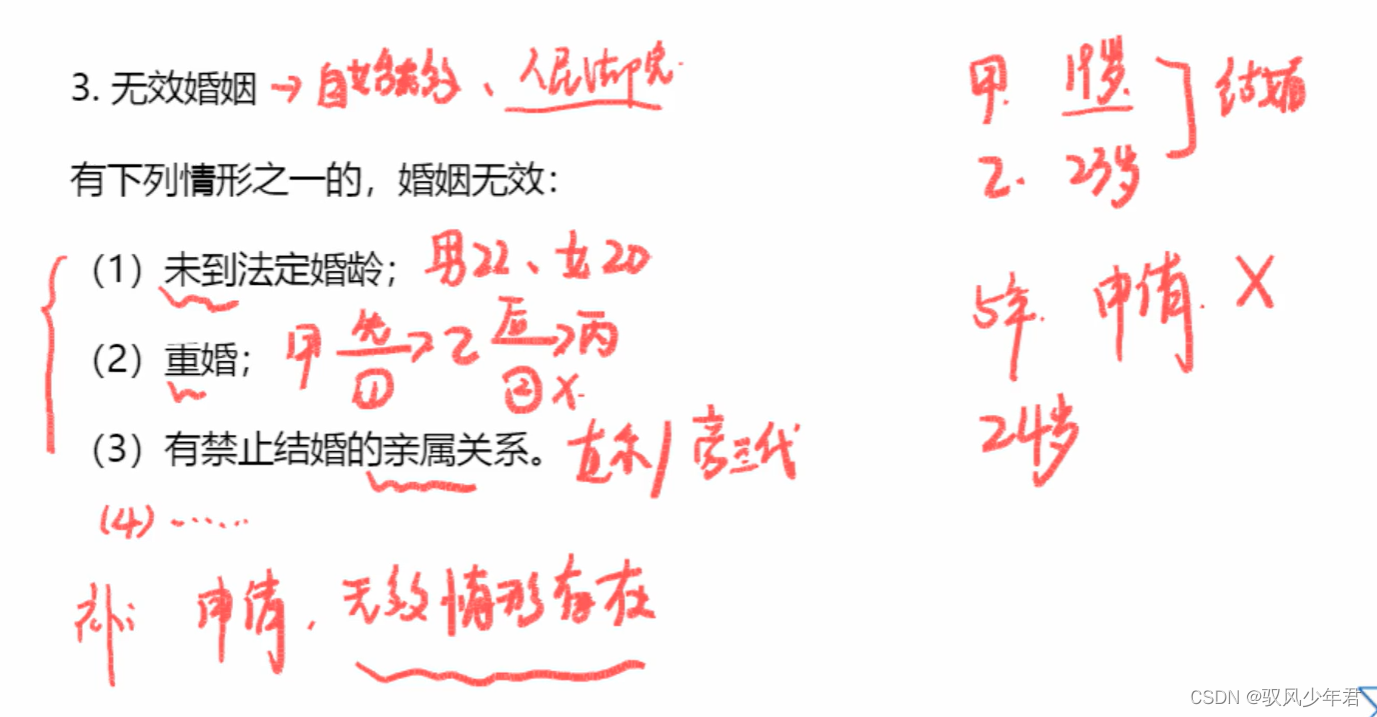 3. 无效婚姻 → 自始无效、人民法院.
有下列情形之一的，婚姻无效：
（1）未到法定婚龄； 男22、女20
（2）重婚； 甲 先 > 乙 后 > 丙
① ② X.
（3）有禁止结婚的亲属关系。 直系/旁三代
(4) ……
补: 申请. 无效情形存在
甲. 19岁. 结婚
乙. 23岁
5年. 申请. X
24岁
CSDN @驭风少年君